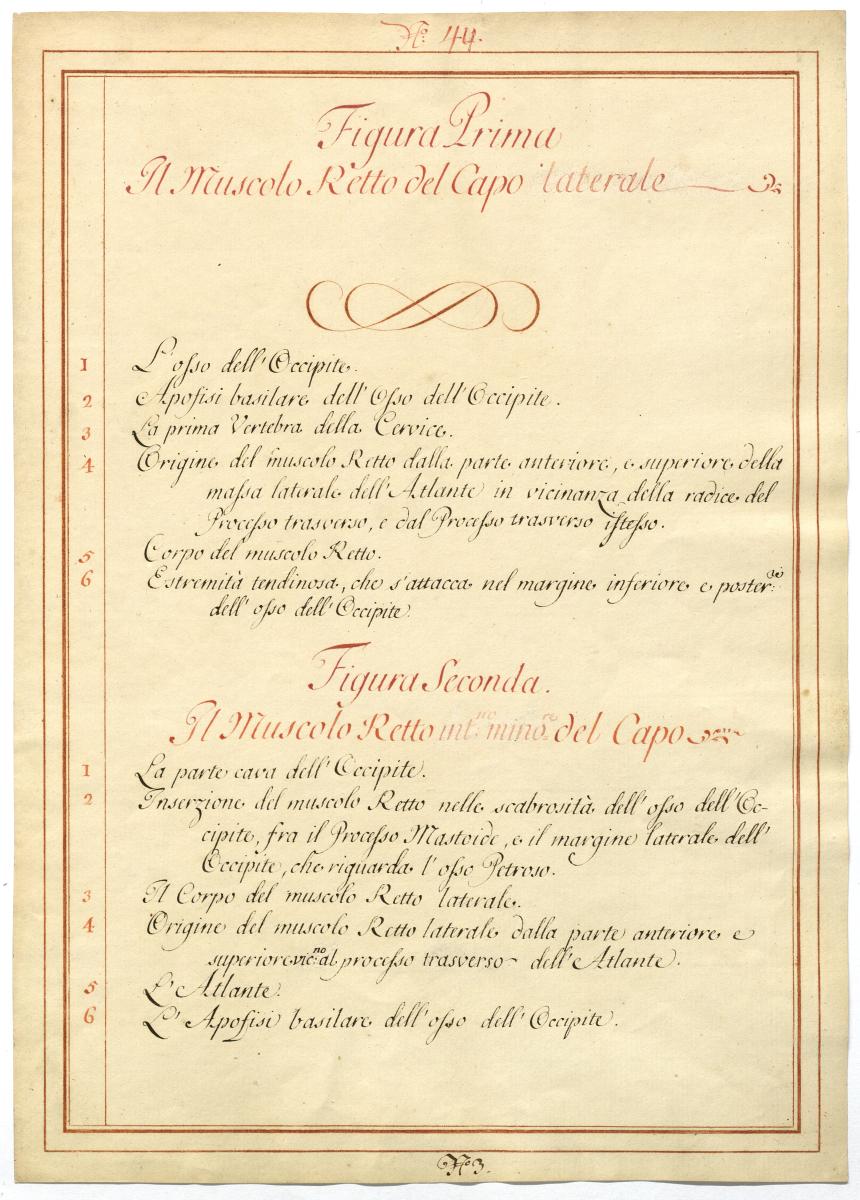 N.º 44.
Figura Prima
Il Muscolo Retto del Capo laterale
1 L'osso dell'Occipite.
2 Apofisi basilare dell'Osso dell'Occipite.
3 La prima Vertebra della Cervice.
4 Origine del muscolo Retto dalla parte anteriore, e superiore della
massa laterale dell'Atlante in vicinanza della radice del
Processo trasverso, e dal Processo trasverso istesso.
5 Corpo del muscolo Retto.
6 Estremità tendinosa, che s'attacca nel margine inferiore e poster:
dell'osso dell'Occipite.
Figura Seconda.
Il Muscolo Retto int:no mino:re del Capo
1 La parte cava dell'Occipite.
2 Inserzione del muscolo Retto nelle scabrosità dell'osso dell'Oc-
cipite, fra il Processo Mastoide, e il margine laterale dell'
Occipite, che riguarda l'osso Petroso.
3 Il Corpo del muscolo Retto laterale.
4 Origine del muscolo Retto laterale dalla parte anteriore e
superiore vic:no al processo trasverso dell'Atlante.
5 L'Atlante.
6 L'Apofisi basilare dell'osso dell'Occipite.
Nº 3.